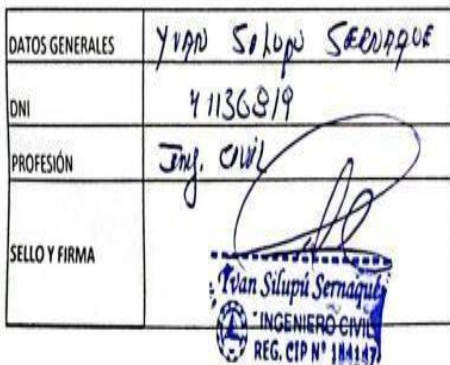 DATOS GENERALES YVAN Silupú SERNAQUE
DNI 41136819
PROFESIÓN Ing. CIVIL
SELLO Y FIRMA
Yvan Silupú Sernaqué
INGENIERO CIVIL
REG. CIP N° 184147